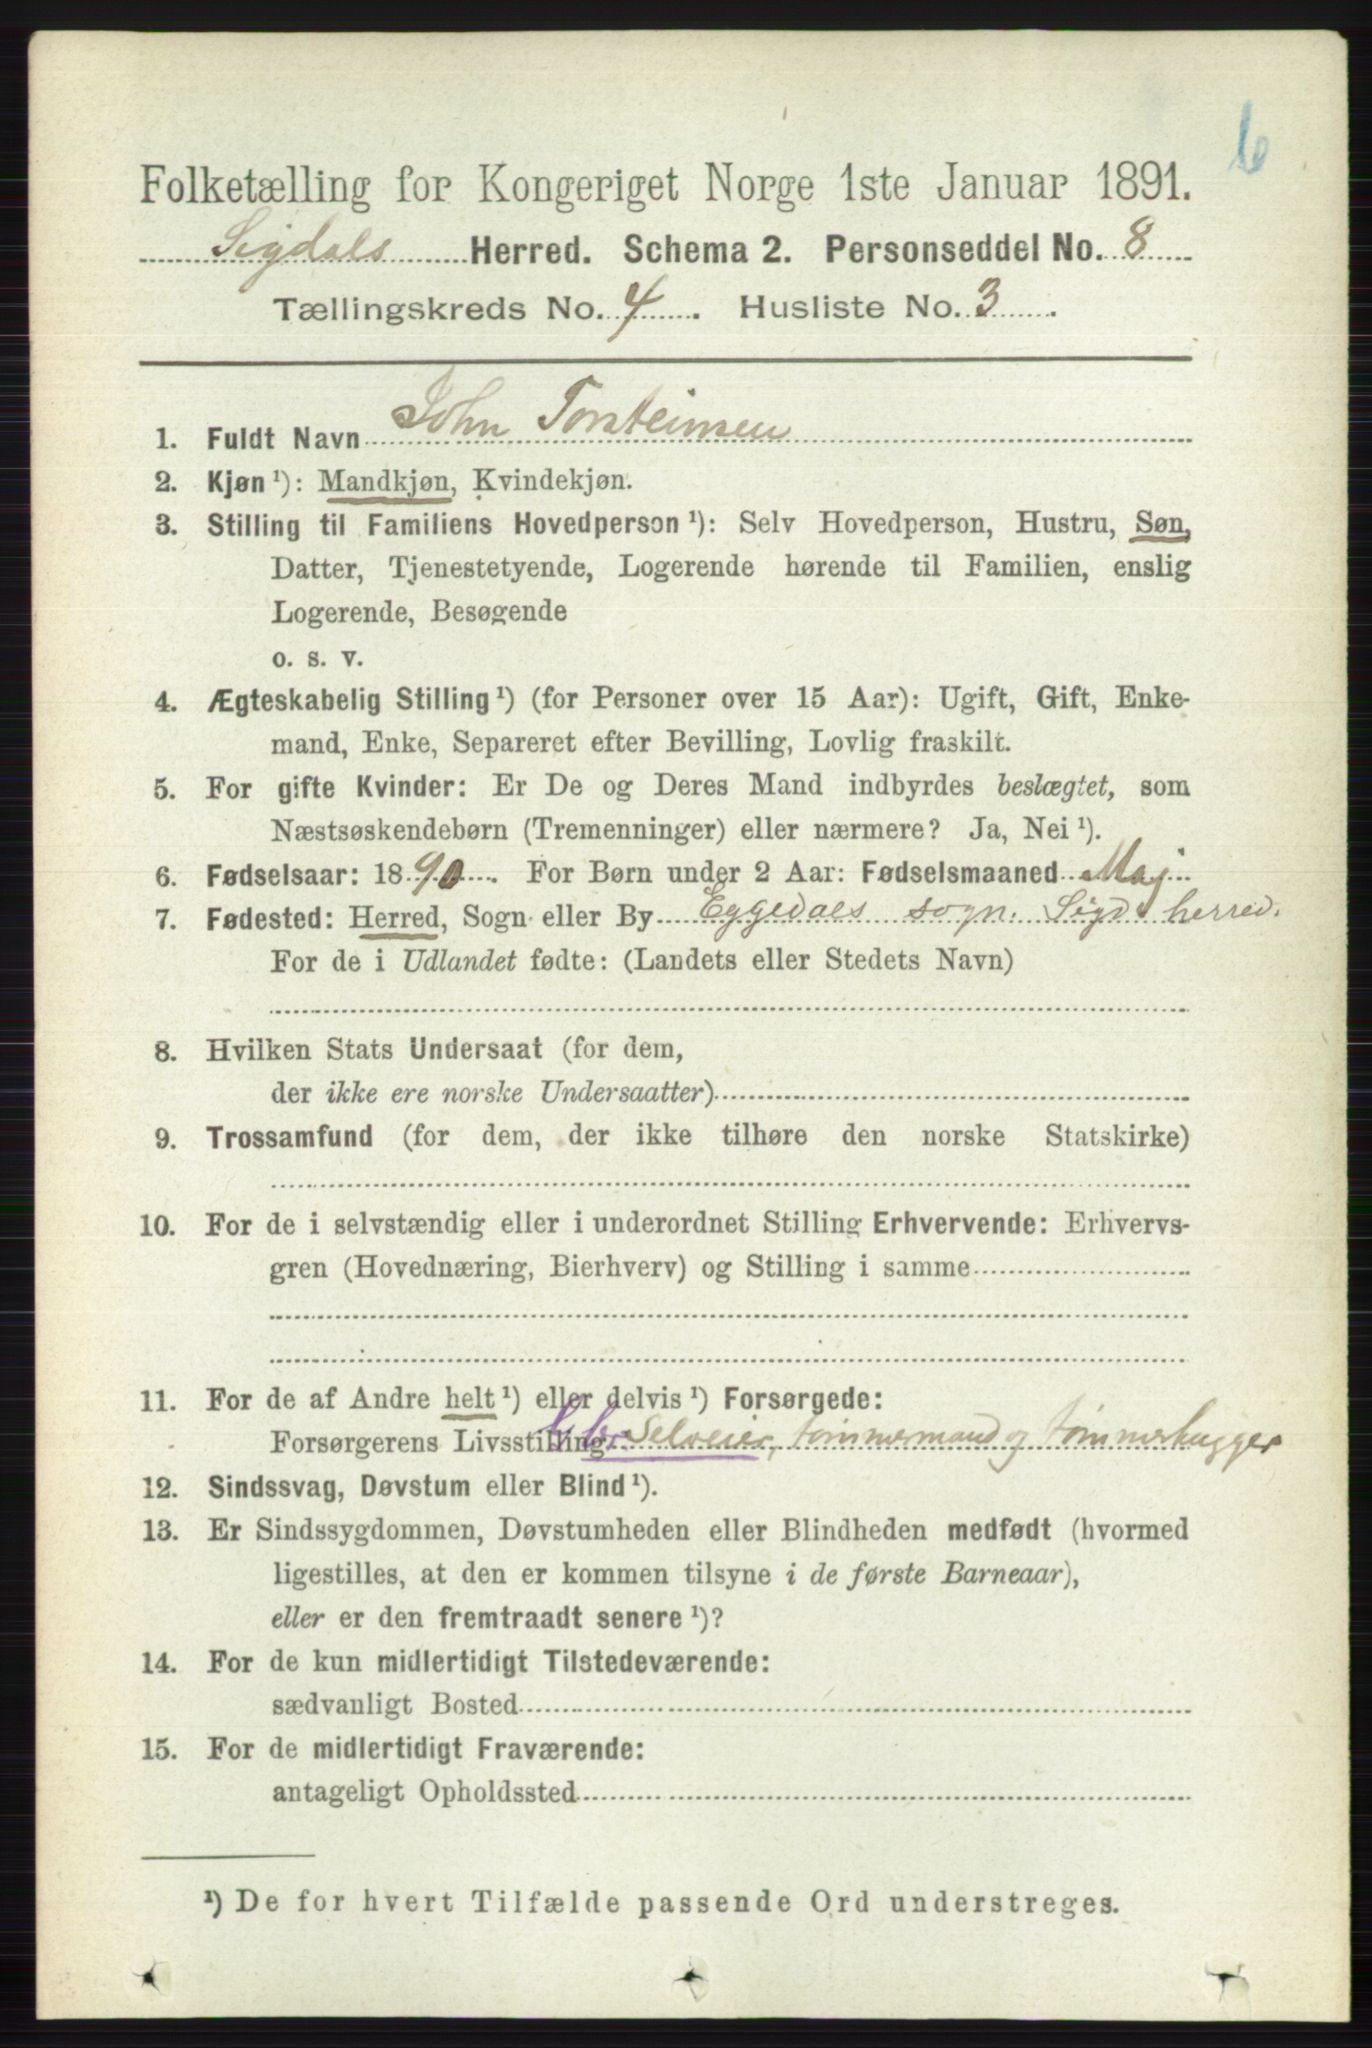 6
Folketælling for Kongeriget Norge 1ste Januar 1891.
Sigdals Herred. Schema 2. Personseddel No. 8
Tællingskreds No. 4. Husliste No. 3.
1. Fuldt Navn John Torsteinsen
2. Kjøn ¹): Mandkjøn, Kvindekjøn.
3. Stilling til Familiens Hovedperson ¹): Selv Hovedperson, Hustru, Søn,
Datter, Tjenestetyende, Logerende hørende til Familien, enslig
Logerende, Besøgende
o. s. v.
4. Ægteskabelig Stilling ¹) (for Personer over 15 Aar): Ugift, Gift, Enke-
mand, Enke, Separeret efter Bevilling, Lovlig fraskilt.
5. For gifte Kvinder: Er De og Deres Mand indbyrdes beslægtet, som
Næstsøskendebørn (Tremenninger) eller nærmere? Ja, Nei ¹).
6. Fødselsaar: 1890. For Børn under 2 Aar: Fødselsmaaned Maj
7. Fødested: Herred, Sogn eller By Eggedals sogn. Sigd. herred.
For de i Udlandet fødte: (Landets eller Stedets Navn)
8. Hvilken Stats Undersaat (for dem,
der ikke ere norske Undersaatter)
9. Trossamfund (for dem, der ikke tilhøre den norske Statskirke)
10. For de i selvstændig eller i underordnet Stilling Erhvervende: Erhvervs-
gren (Hovednæring, Bierhverv) og Stilling i samme
11. For de af Andre helt ¹) eller delvis ¹) Forsørgede:
Forsørgerens Livsstilling Selveier, tømmermand og tømmerhugger
12. Sindssvag, Døvstum eller Blind ¹).
13. Er Sindssygdommen, Døvstumheden eller Blindheden medfødt (hvormed
ligestilles, at den er kommen tilsyne i de første Barneaar),
eller er den fremtraadt senere ¹)?
14. For de kun midlertidigt Tilstedeværende:
sædvanligt Bosted
15. For de midlertidigt Fraværende:
antageligt Opholdssted
¹) De for hvert Tilfælde passende Ord understreges.